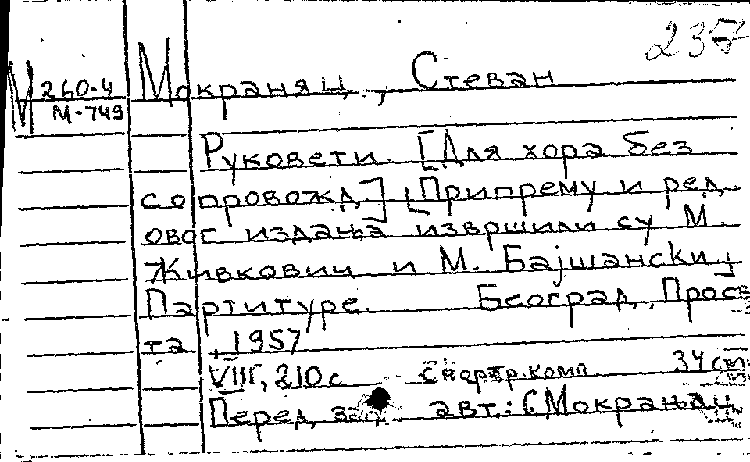 237
М 260-4 Мокраняц, Стеван
М-749
Руковети. [Для хора без
сопровожд.] [Припрему и ред.
овог издања извршили су М.
Живкович и М. Бајшански.]
Партитуре. Београд, Просве
та, 1957
VIII, 210 с 34 см
Перед авт.: С Мокрањац